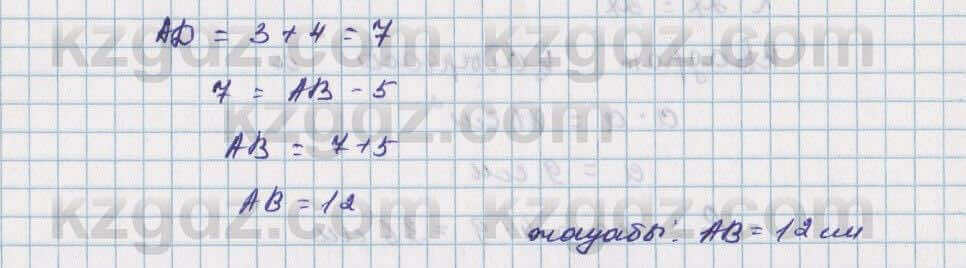 AD = 3 + 4 = 7
7 = AB - 5
AB = 7 + 5
AB = 12
жауабы: AB = 12 см
kzgdz.com kzgdz.com
kzgdz.com
kzgdz.com kzgdz.com